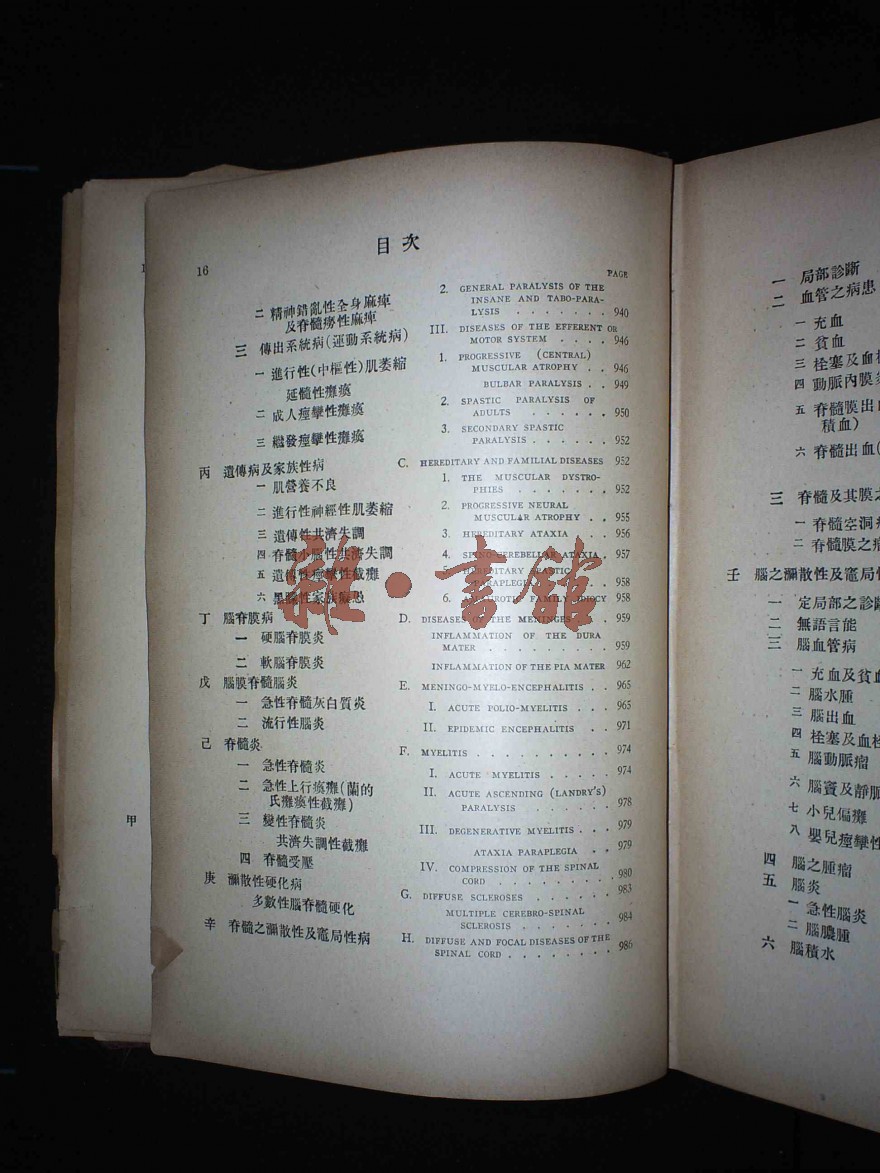 目次
16
PAGE
二 精神錯亂性全身麻痺
及脊髓癆性麻痺
2. GENERAL PARALYSIS OF THE
INSANE AND TABO-PARA-
LYSIS . . . . . . . 940
三 傳出系統病(運動系統病)
III. DISEASES OF THE EFFERENT OR
MOTOR SYSTEM . . . . 946
一 進行性(中樞性)肌萎縮
1. PROGRESSIVE (CENTRAL)
MUSCULAR ATROPHY . . 946
延髓性癱瘓
BULBAR PARALYSIS . . 949
二 成人痙攣性癱瘓
2. SPASTIC PARALYSIS OF
ADULTS . . . . . . 950
三 繼發痙攣性癱瘓
3. SECONDARY SPASTIC
PARALYSIS . . . . . . 952
丙 遺傳病及家族性病
C. HEREDITARY AND FAMILIAL DISEASES 952
一 肌營養不良
1. THE MUSCULAR DYSTRO-
PHIES . . . . . . . 952
二 進行性神經性肌萎縮
2. PROGRESSIVE NEURAL
MUSCULAR ATROPHY . . 955
三 遺傳性共濟失調
3. HEREDITARY ATAXIA . . . 956
四 脊髓小腦性共濟失調
4. SPINO-CEREBELLAR ATAXIA . 957
五 遺傳性痙攣性截癱
5. HEREDITARY SPASTIC
PARAPLEGIA . . . 958
六 黑矇性家族癡愚
6. FAMILY IDIOCY 958
丁 腦脊膜病
D. DISEASES OF THE MENINGES . . . 959
一 硬腦脊膜炎
INFLAMMATION OF THE DURA
MATER . . . . . . . . 959
二 軟腦脊膜炎
INFLAMMATION OF THE PIA MATER 962
戊 腦膜脊髓腦炎
E. MENINGO-MYELO-ENCEPHALITIS . . 965
一 急性脊髓灰白質炎
I. ACUTE POLIO-MYELITIS . . . 965
二 流行性腦炎
II. EPIDEMIC ENCEPHALITIS . . 971
己 脊髓炎
F. MYELITIS . . . . . . . . . 974
一 急性脊髓炎
I. ACUTE MYELITIS . . . . . 974
二 急性上行瘓癱(蘭的
氏癱瘓性截癱)
II. ACUTE ASCENDING (LANDRY'S)
PARALYSIS . . . . . . 978
三 變性脊髓炎
III. DEGENERATIVE MYELITIS . . . 979
共濟失調性截癱
ATAXIA PARAPLEGIA . . 979
四 脊髓受壓
IV. COMPRESSION OF THE SPINAL
CORD . . . . . . . . . 980
庚 瀰散性硬化病
G. DIFFUSE SCLEROSES . . . . . . 983
多數性腦脊髓硬化
MULTIPLE CEREBRO-SPINAL
SCLEROSIS . . . . . . . 984
辛 脊髓之瀰散性及竈局性病
H. DIFFUSE AND FOCAL DISEASES OF THE
SPINAL CORD . . . . . . . . 986
甲
雜·書館
一 局部診斷
二 血管之病患
一 充血
二 貧血
三 栓塞及血
四 動脈內膜
五 脊髓膜出
積血)
六 脊髓出血(
三 脊髓及其膜之
一 脊髓空洞
二 脊髓膜之
壬 腦之瀰散性及竈局
一 定局部之診
二 無語言能
三 腦血管病
一 充血及貧
二 腦水腫
三 腦出血
四 栓塞及血
五 腦動脈瘤
六 腦竇及靜
七 小兒偏癱
八 嬰兒痙攣
四 腦之腫瘤
五 腦炎
一 急性腦炎
二 腦膿腫
六 腦積水